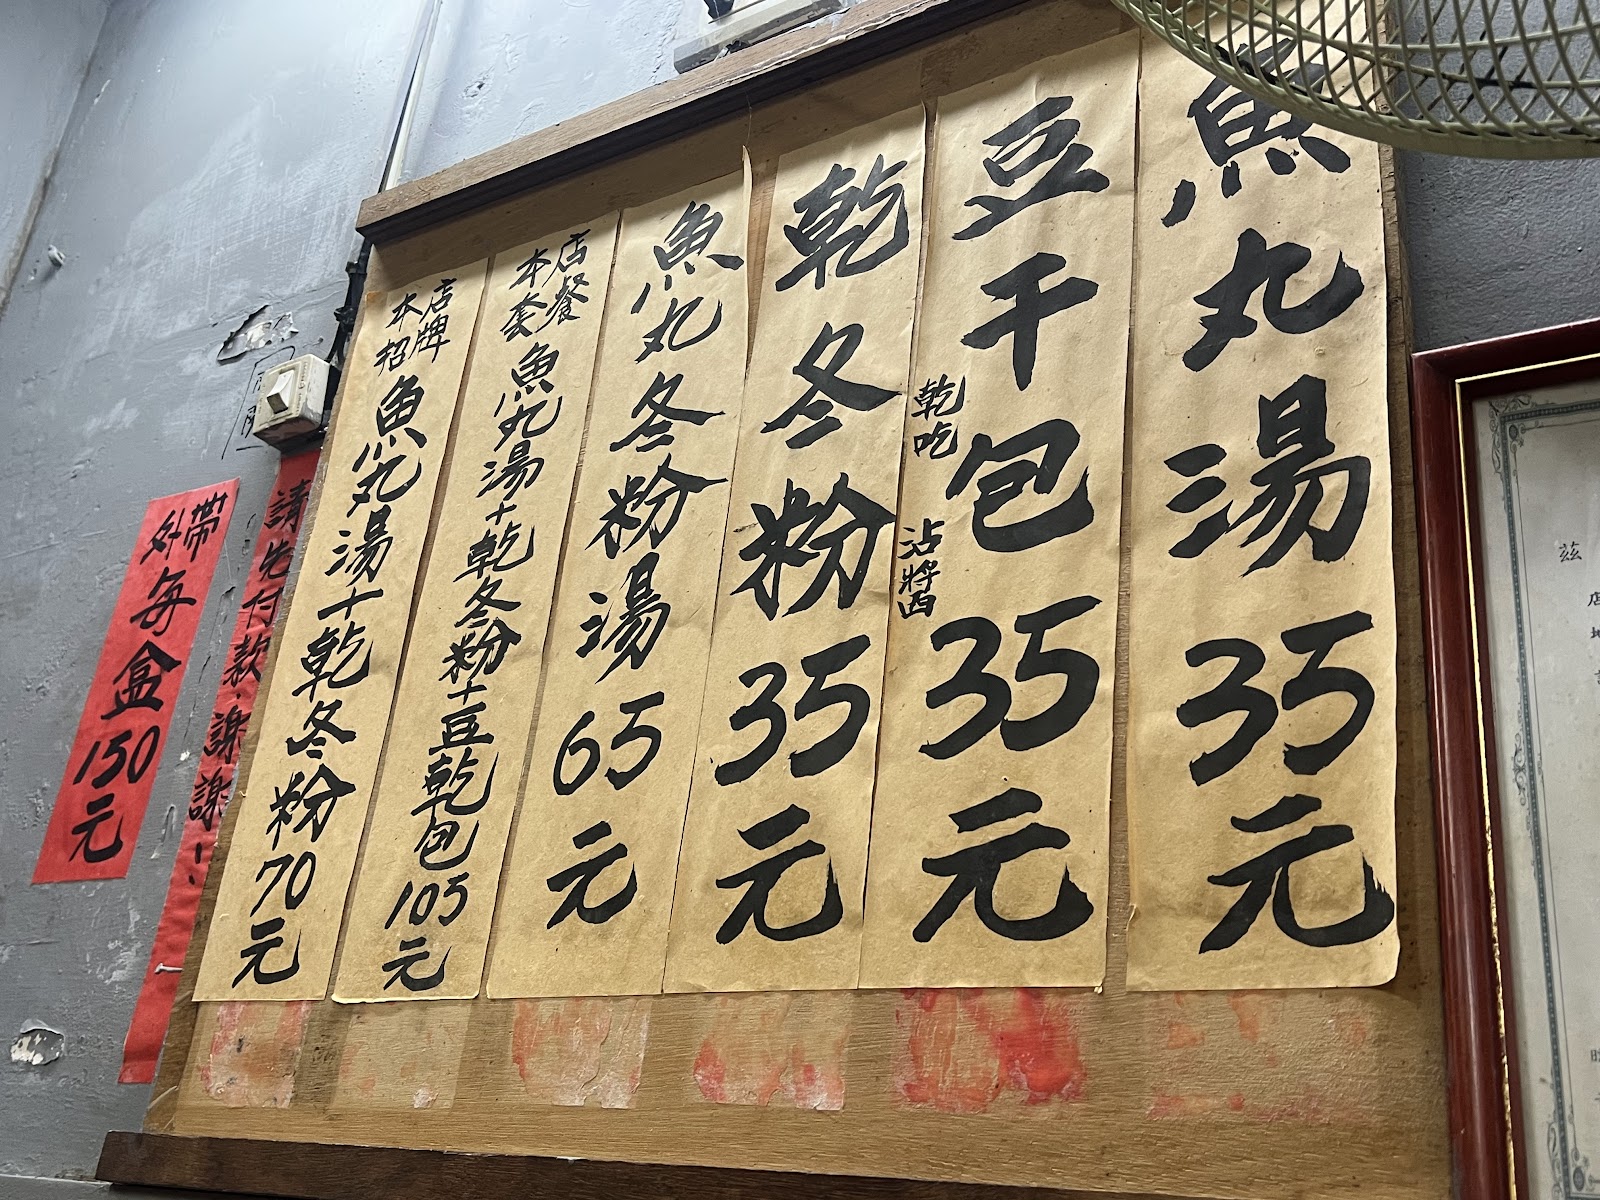 魚丸湯35元
豆干包35元
乾吃 沾醬
乾冬粉35元
魚丸冬粉湯65元
本店套餐 魚丸湯+乾冬粉+豆乾包105元
本店招牌 魚丸湯+乾冬粉70元
請先付款.謝謝!
外帶每盒150元
茲